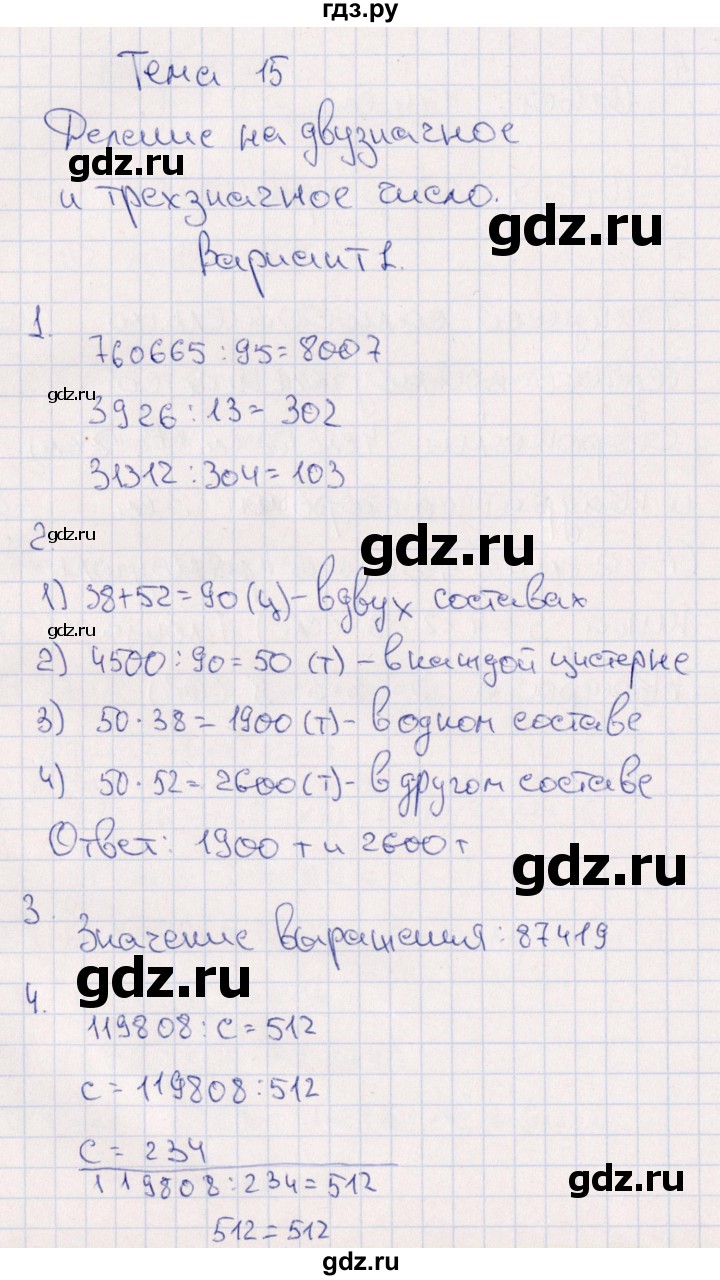 гдз.ру
Тема 15
Деление на двузначное
gdz.ru
и трехзначное число.
gdz.ru
Вариант 1.
1.
760665 : 95 = 8007
gdz.ru
3926 : 13 = 302
31312 : 304 = 103
2.
gdz.ru
gdz.ru
1) 38 + 52 = 90 (ц) - в двух составах
gdz.ru
2) 4500 : 90 = 50 (т) - в каждой цистерне
3) 50 · 38 = 1900 (т) - в одном составе
4) 50 · 52 = 2600 (т) - в другом составе
Ответ: 1900 т и 2600 т
gdz.ru
3.
Значение выражения : 87419
gdz.ru
4.
119808 : с = 512
с = 119808 : 512
с = 234
119808 : 234 = 512
gdz.ru
512 = 512
gdz.ru